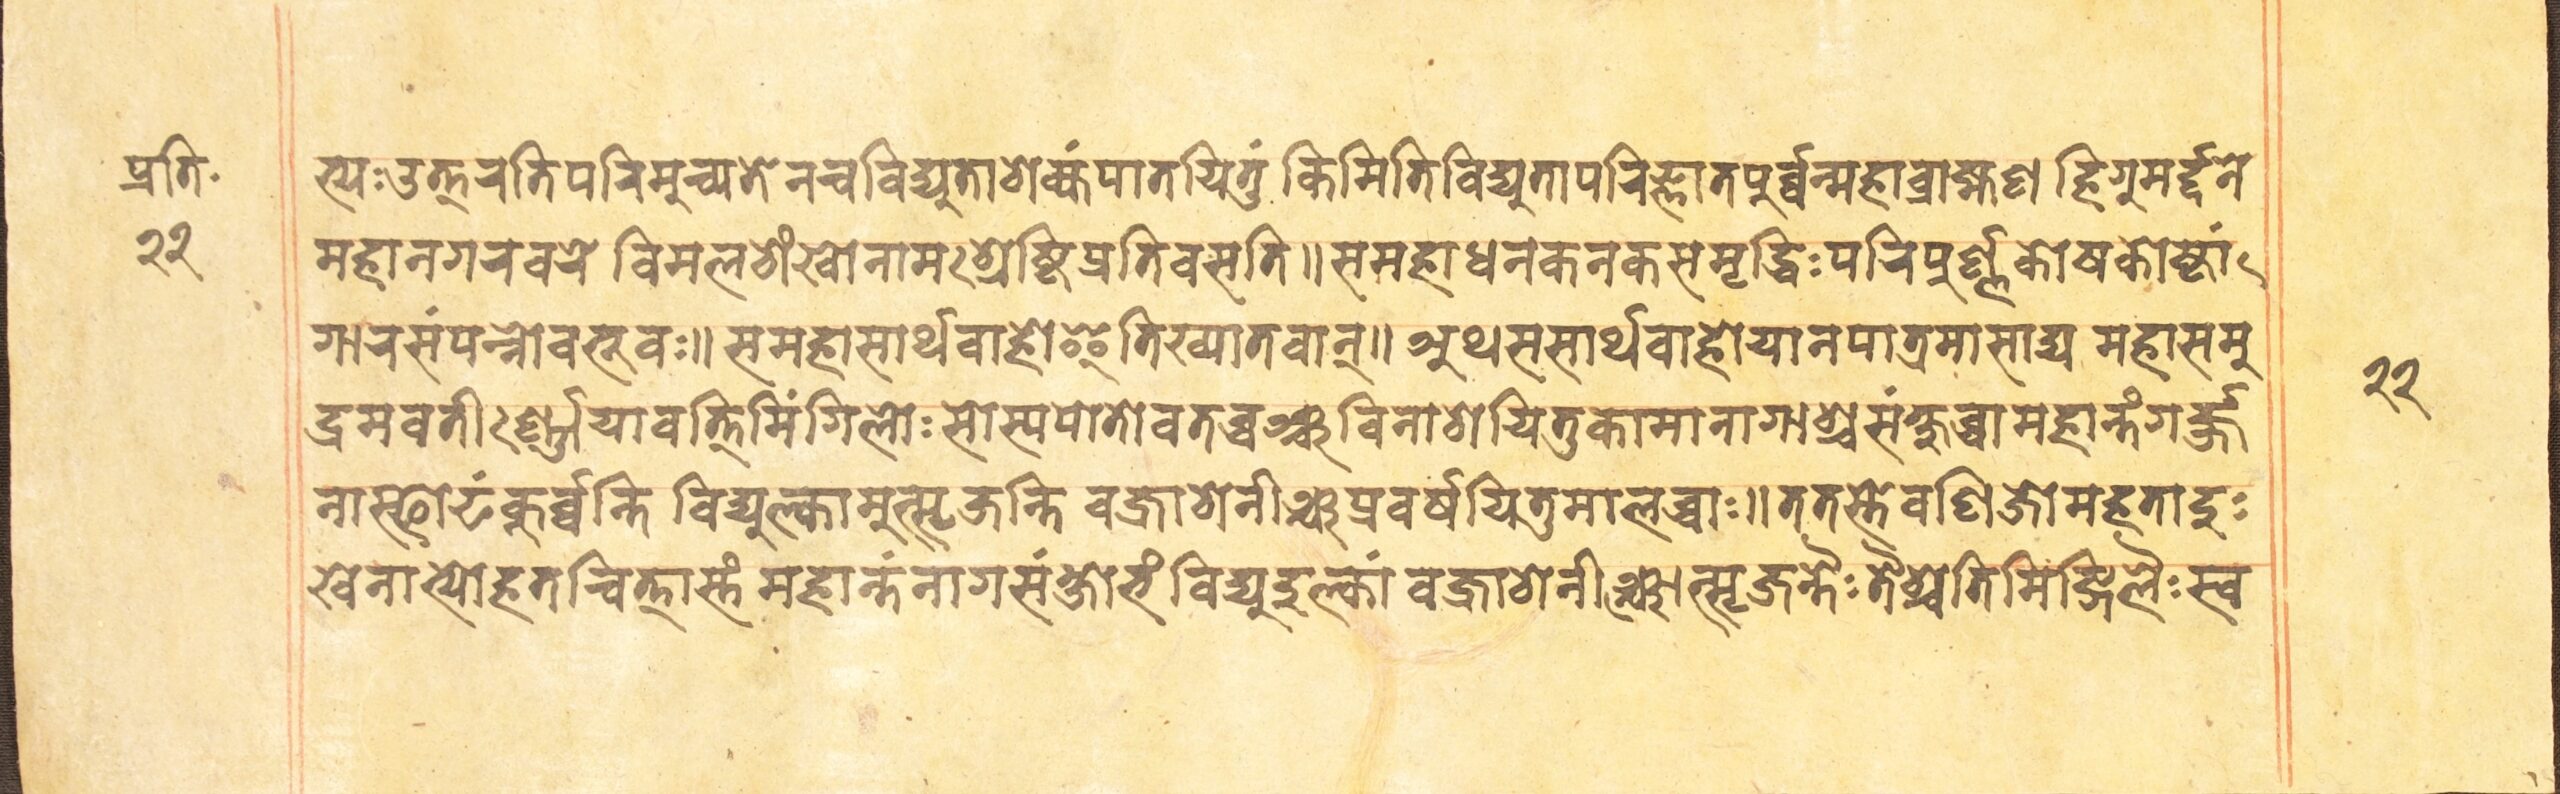 प्रति॰
२२
भ्यः उत्तरति परिमुच्यते नच विद्युता शक्यं पातयितुं किमिति विद्युता परिज्ञातपुर्व्वन्महाब्राह्मण हिगुमर्द्दने
महानगरवरे विमलशंखोनामः श्रेष्ठि प्रतिवसति ॥ स महाधनकनकसमृद्धिः परिपुर्ण्णकोषकोष्ठां
गारसंपन्नो वभूवः ॥ स महासार्थवाहो इति ख्यातवान् ॥ अथ स सार्थवाहो यानपात्रमासाद्य महासमु
द्रमवतीर्ण्णः यावत्तिमिंगिलोः सोस्य पोतो वतब्धञ्च विनाशयितुकामा नागाश्च संक्षुब्धा महान्तं गर्ज्ज
नास्फोटं कुर्व्वन्ति विद्युल्कामुत्सृजन्ति वज्राशनीञ्च प्रवर्षयितुमालब्धाः ॥ ततस्ते वणिजो महता दुः
खेनाभ्योहतच्चित्तास्तं महान्तं नागसंक्षोभं विद्युदुल्कां वज्राशनीञ्चोत्सृजन्तैः तैश्च तिमिङ्गिलैः स्व
२२